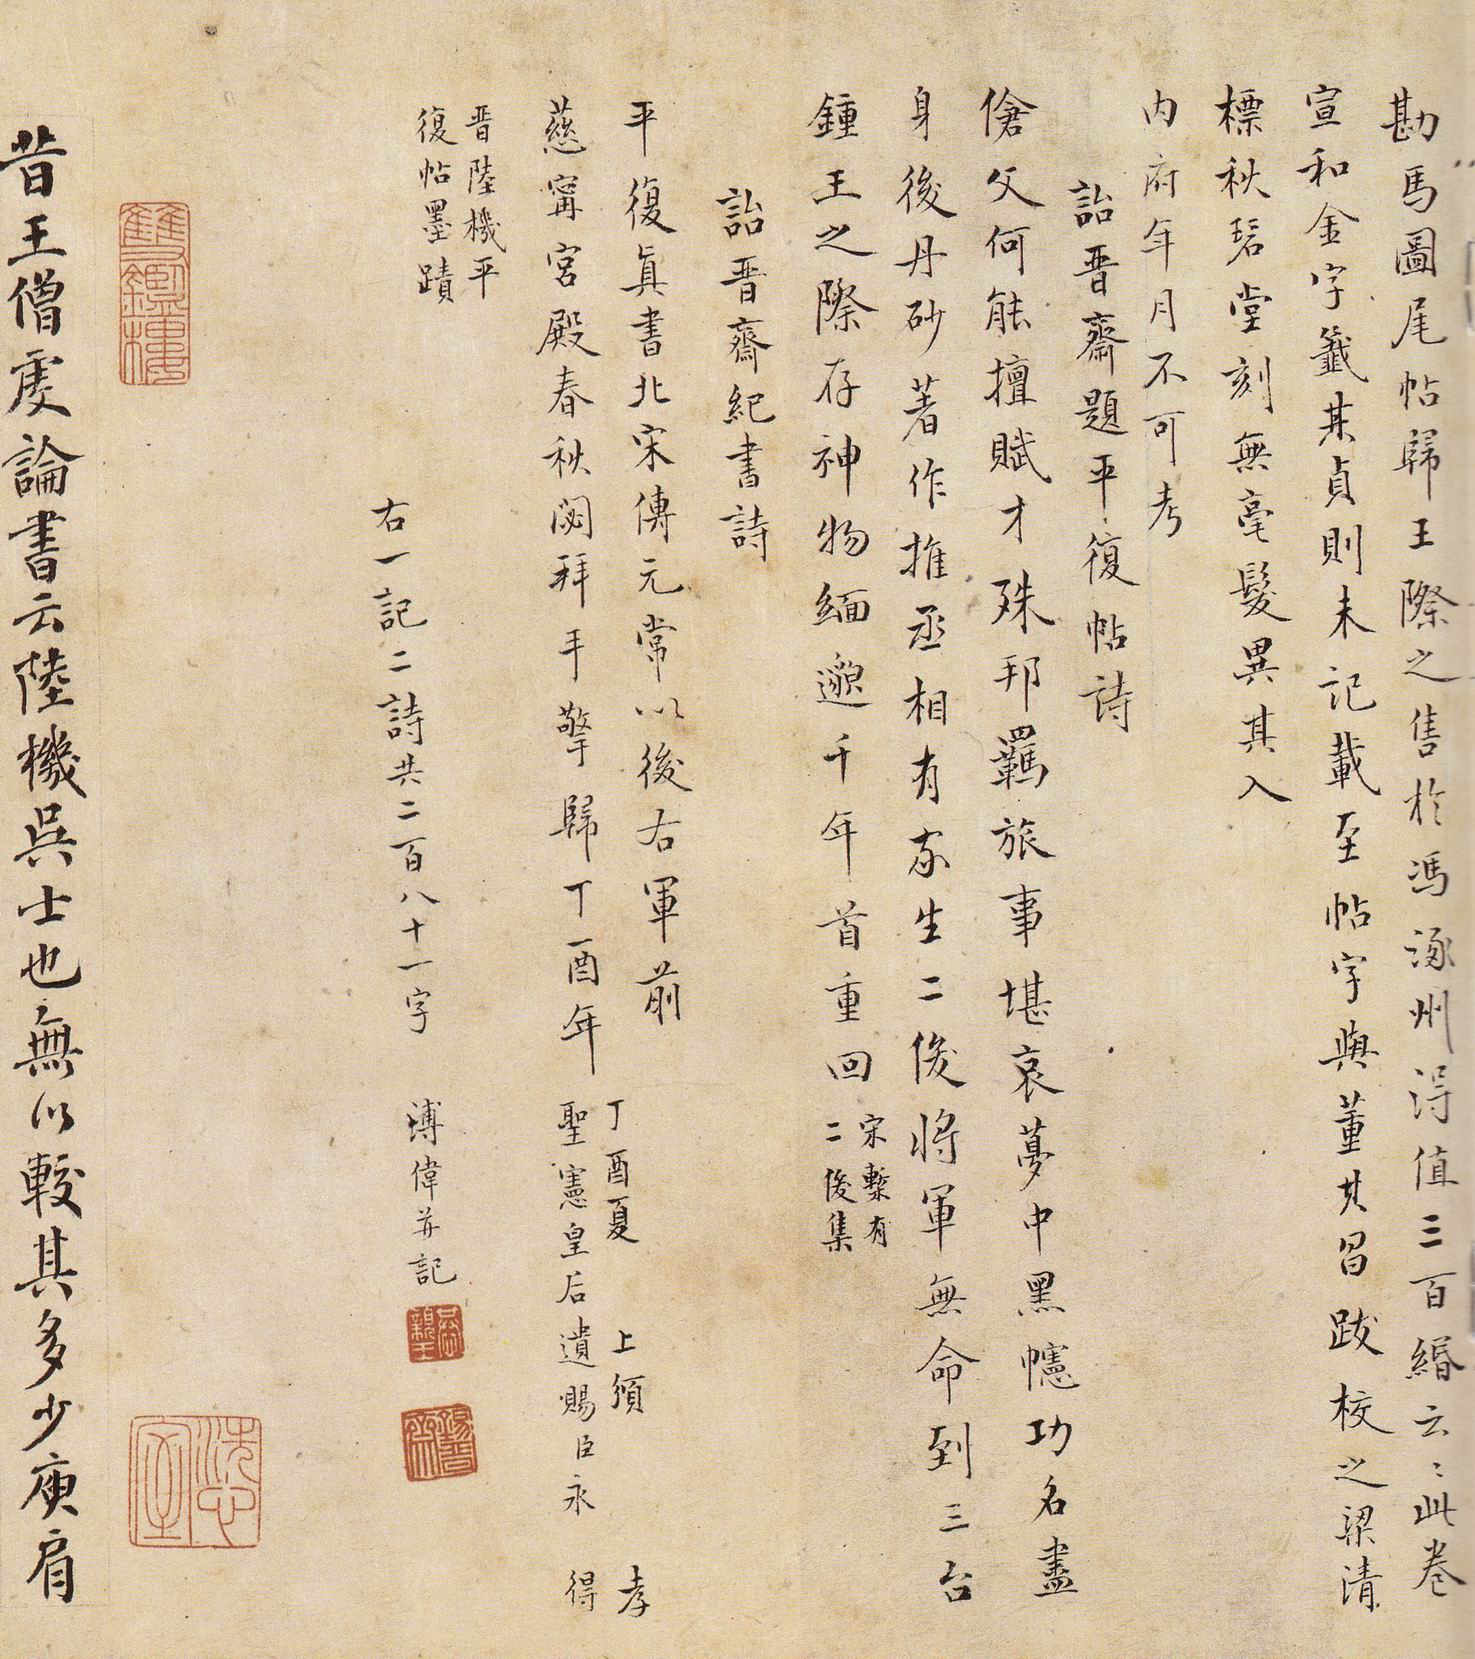 勘馬圖尾帖歸王際之售於馮涿州得值三百緡云〻此卷
宣和金字籤其貞則未記載至帖字與董其昌跋校之梁清
標秋碧堂刻無毫髮異其入
内府年月不可考
詒晋齋題平復帖詩
傖父何能擅賦才殊邦羈旅事堪哀夢中黑幰功名盡
身後丹砂著作推丞相有家生二俊將軍無命到三台
鍾王之際存神物緬邈千年首重回
宋槧有
二俊集
詒晋齋紀書詩
平復真書北宋傳元常以後右軍前
慈寧宮殿春秋閟拜手擎歸丁酉年
丁酉夏 上頒 孝
聖憲皇后遺賜臣永 得
晋陸機平
復帖墨蹟
右一記二詩共二百八十一字 溥偉并記
恭親王
錫晋齋
雙鑑樓
洗心室
昔王僧虔論書云陸機吳士也無以較其多少庾肩